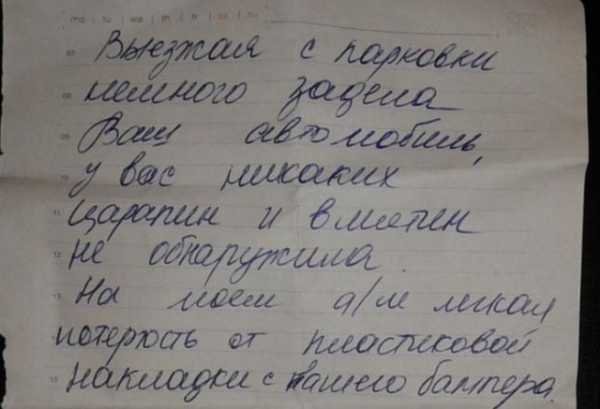 Выезжая с парковки
немного задела
Ваш автомобиль,
у вас никаких
царапин и вмятин
не обнаружила.
На моем а/м легкая
потертость от пластиковой
накладки с Вашего бампера.